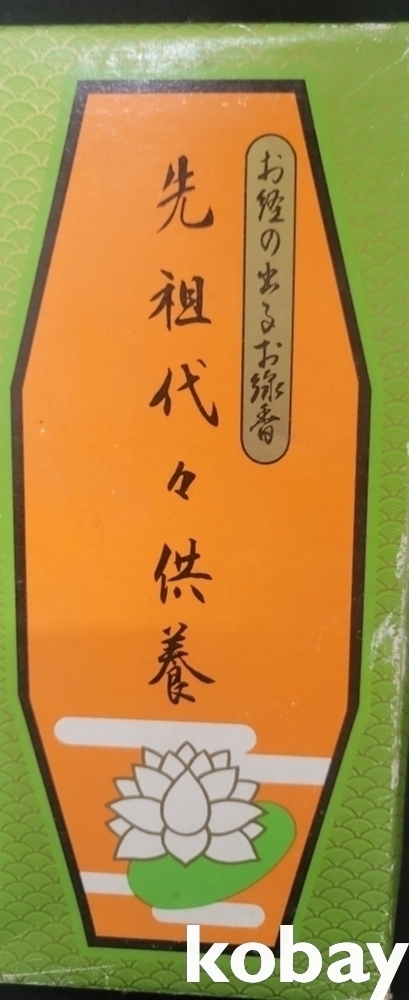 お経の出るお線香
先祖代々供養
kobay